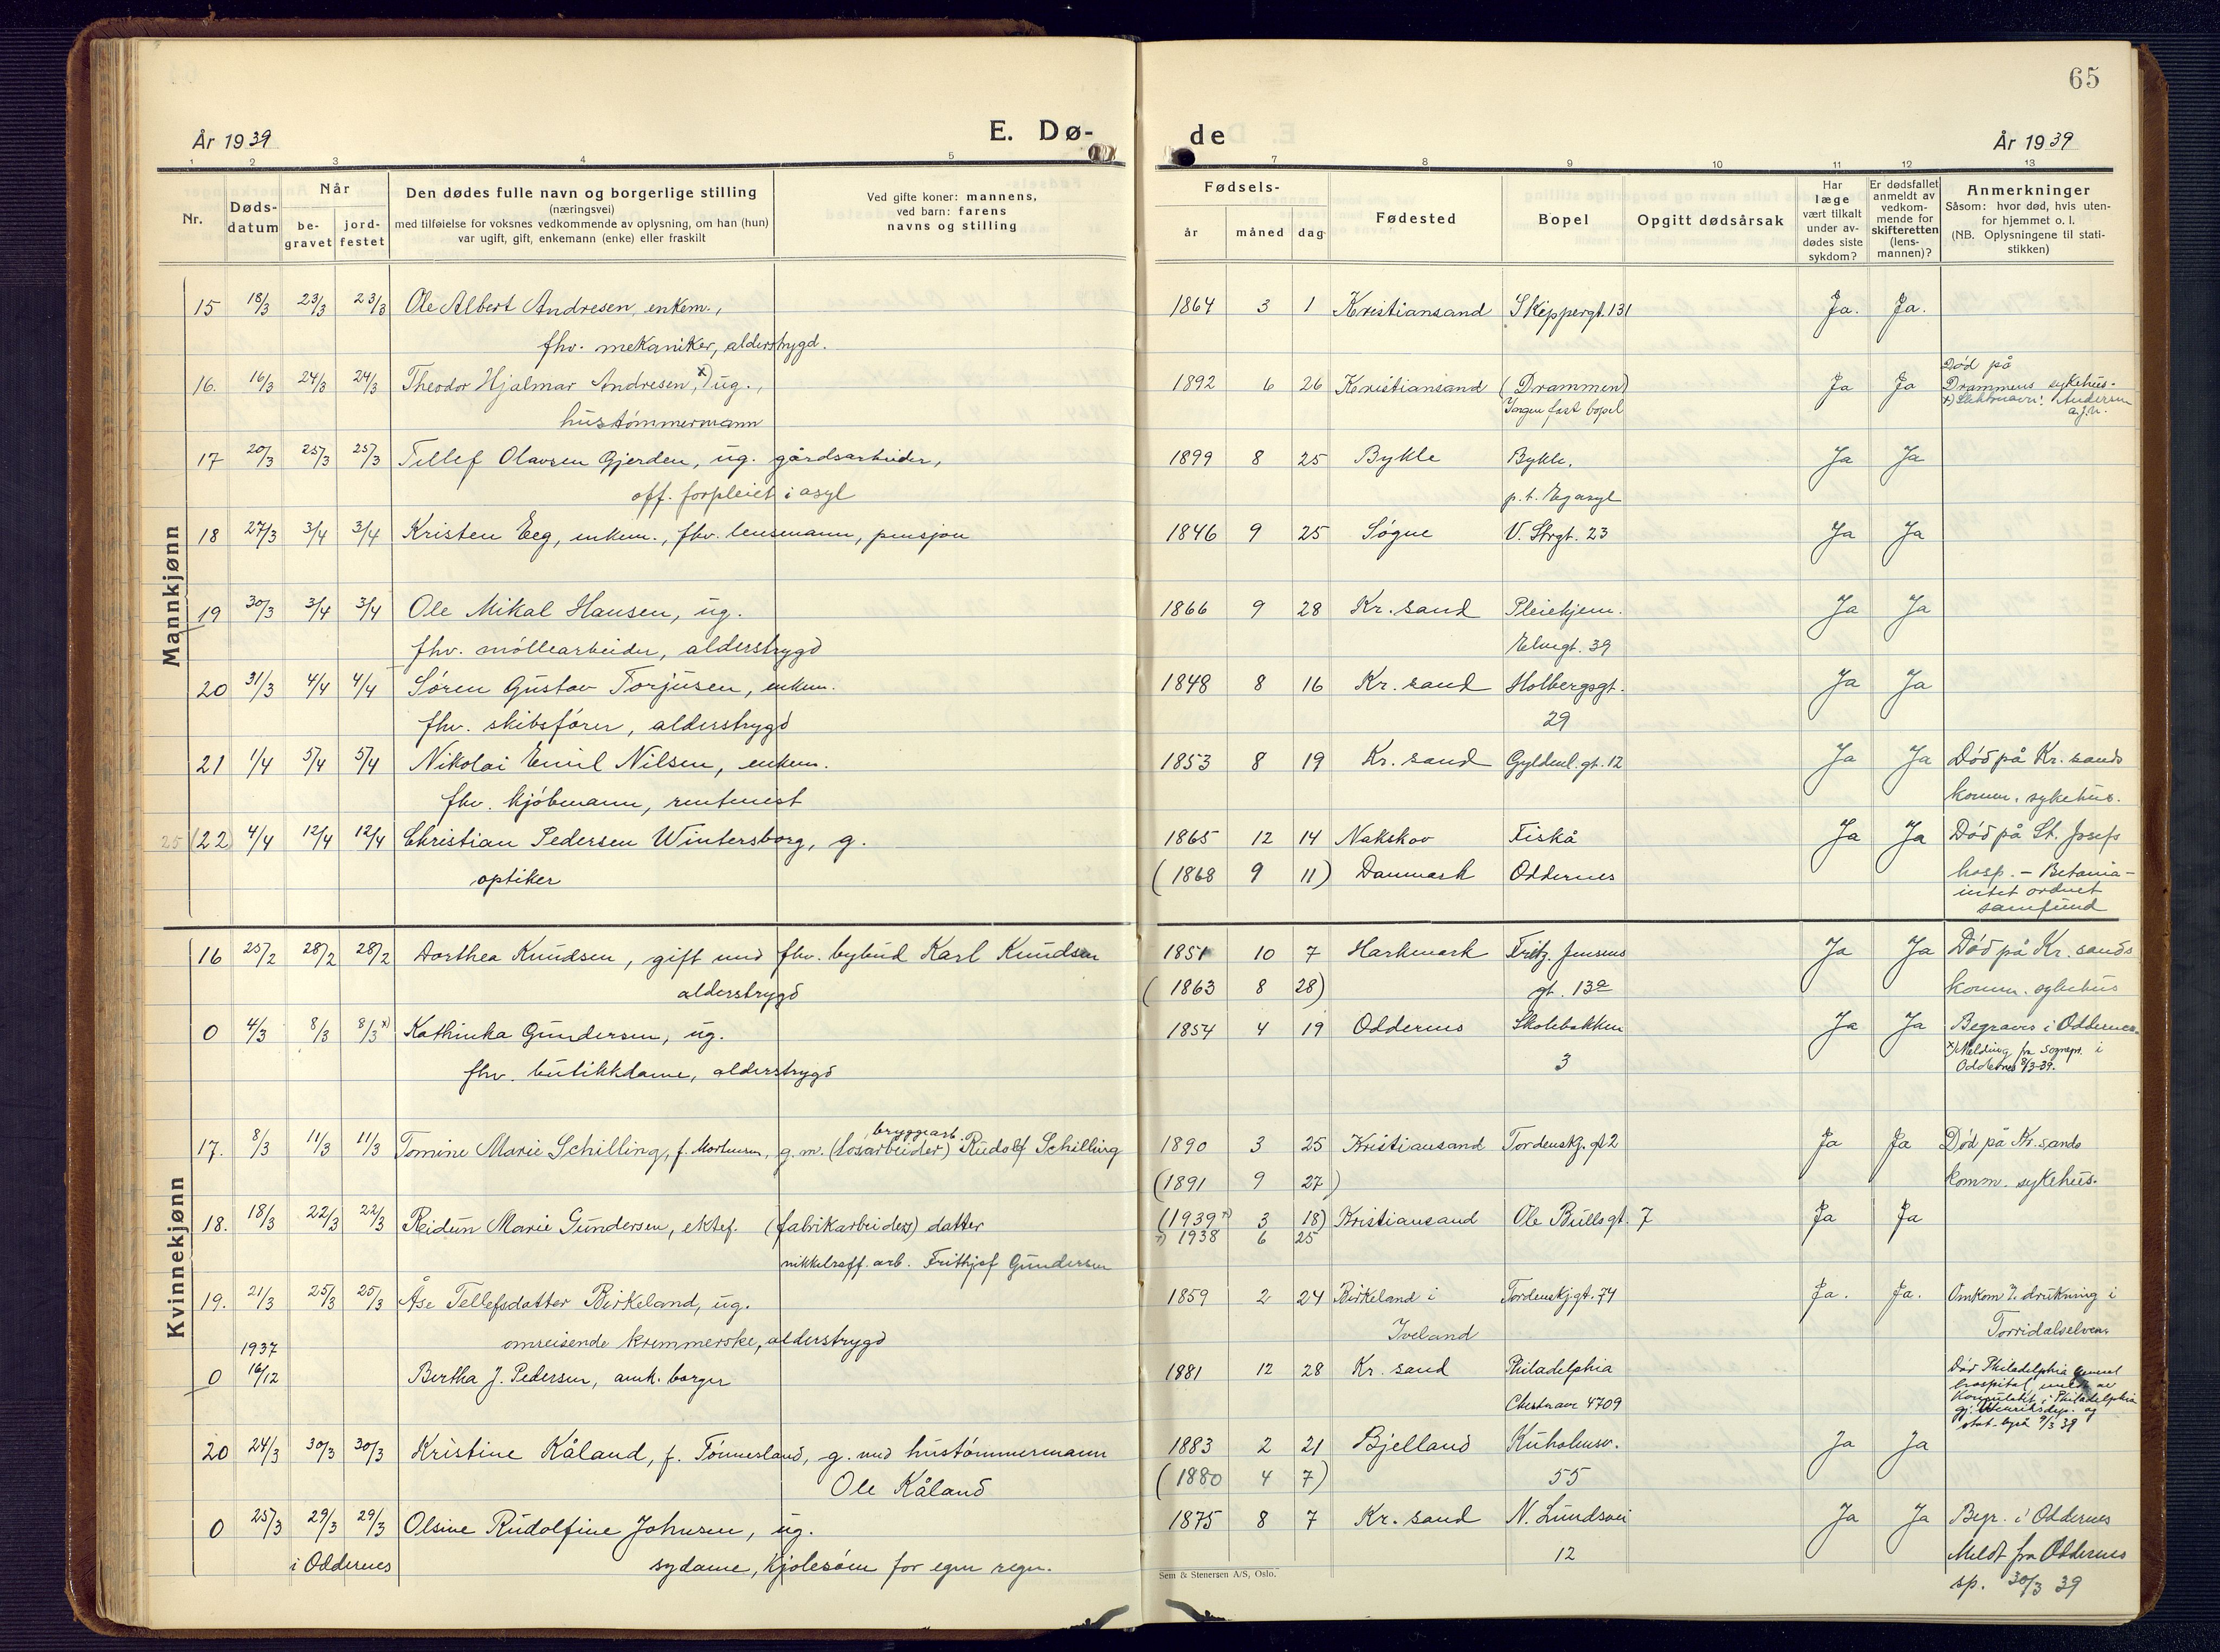 65
År 1939
E. Dø-
de
År 1939
1 2 3 4 5 7 8 9 10 11 12 13
Nr.
Døds-
datum
Når
be-
gravet
jord-
festet
Den dødes fulle navn og borgerlige stilling
(næringsvei)
med tilføielse for voksnes vedkommende av oplysning, om han (hun)
var ugift, gift, enkemann (enke) eller fraskilt
Ved gifte koner: mannens,
ved barn: farens
navns og stilling
Fødsels-
år måned dag
Fødested
Bopel
Opgitt dødsårsak
Har
læge
vært tilkalt
under av-
dødes siste
sykdom?
Er dødsfallet
anmeldt av
vedkom-
mende for
skifteretten
(lens-
mannen)?
Anmerkninger
Såsom: hvor død, hvis uten-
for hjemmet o. l.
(NB. Oplysningene til stati-
stikken)
Mannkjønn
15 18/3 23/3 23/3 Ole Albert Andresen, enkem., 1864 3 1 Kristiansand Skippergt. 131 Ja. Ja.
fhv. mekaniker, alderstrygd.
16. 16/3 24/3 24/3 Theodor Hjalmar Andresen, x) ug., 1892 6 26 Kristiansand (Drammen) Ja Ja Død på
hustømmermann Ingen fast bopel Drammens sykehus.
x) Slektsnavn: Andersen
17 20/3 25/3 25/3 Tellef Olavsen Gjerden, ug. gårdsarbeider, 1899 8 25 Bykle Bykle, Ja Ja
off. forpleiet i asyl p.t. Eg asyl
18 27/3 3/4 3/4 Kristen Eeg, enkem., fhv. lensmann, pensjon 1846 9 25 Søgne V. Strgt. 23 Ja Ja
19 30/3 3/4 3/4 Ole Mikal Hansen, ug. 1866 9 28 Kr. sand Pleiehjem. Ja Ja
fhv. møllearbeider, alderstrygd Elvegt. 39
20 31/3 4/4 4/4 Søren Gustav Torjusen, enkem. 1848 8 16 Kr. sand Holbergsgt. Ja Ja
fhv. skibsfører, alderstrygd 29
21 1/4 5/4 5/4 Nikolai Emil Nilsen, enkem. 1853 8 19 Kr. sand Gyldenl. gt. 12 Ja Ja Død på Kr. sands
fhv. kjøbmann, rentenist komm. sykehus.
25 (22) 4/4 12/4 12/4 Christian Pedersen Wintersborg, g. 1865 12 14 Nakskov Fiskå Ja Ja Død på St. Josefs
optiker (1868 9 11) Danmark Oddernes hosp. - Betania -
intet ordnet
samfund
Kvinnekjønn
16 25/2 28/2 28/2 Dorthea Knudsen, gift med fhv. bybud Karl Knudsen 1851 10 7 Harkmark Fritz Jensens Ja Ja Død på Kr. sands
alderstrygd (1863 8 28) gt. 13a komm. sykehus
0 4/3 8/3 8/3 x) Kathinka Gundersen, ug. 1854 4 19 Oddernes Skolebakken Ja Ja Begraves i Oddernes.
fhv. butikkdame, alderstrygd 3 x) Melding fra sognepr. i
Oddernes 8/3-39.
bryggearb.
17. 8/3 11/3 11/3 Tomine Marie Schilling, f. Mortensen, g. m. (løsarbeider) Rudolf Schilling 1890 3 25 Kristiansand Tordenskj. gt 2 Ja Ja Død på Kr. sands
(1891 9 27) komm. sykehus.
18. 18/3 22/3 22/3 Reidun Marie Gundersen, ektef. (fabrikarbeiders) datter (1939 x) 3 18) Kristiansand Ole Bullsgt. 7 Ja Ja
x) 1938 6 25
nikkelraff. arb. Frithjof Gundersen
19. 21/3 25/3 25/3 Åse Tellefsdatter Birkeland, ug. 1859 2 24 Birkeland i Tordenskj.gt. 74 Ja. Ja. Omkom v. drukning i
omreisende kremmerske, alderstrygd Iveland Torridalselven.
1937
0 16/12 Bertha J. Pedersen, amk. borger 1881 12 28 Kr. sand Philadelphia Død Philadelphia General
Chester ave 4709 hospital, meldt av
Konsulatet i Philadelphia
gj. Utenriksdep. og
stat. byrå 9/3 39
20 24/3 30/3 30/3 Kristine Kåland, f. Tønnesland, g. med hustømmermann 1883 2 21 Bjelland Kuholmsv. Ja Ja
Ole Kåland (1880 4 7) 55
0 25/3 29/3 29/3 Olsine Rudolfine Johnsen, ug. 1875 8 7 Kr. sand N. Lundsvei Ja Ja Begr. i Oddernes
i Oddernes sydame, Kjolesøm for egen regn. 12 Meldt fra Oddernes
sp. 30/3 39
Sem & Stenersen A/S, Oslo.